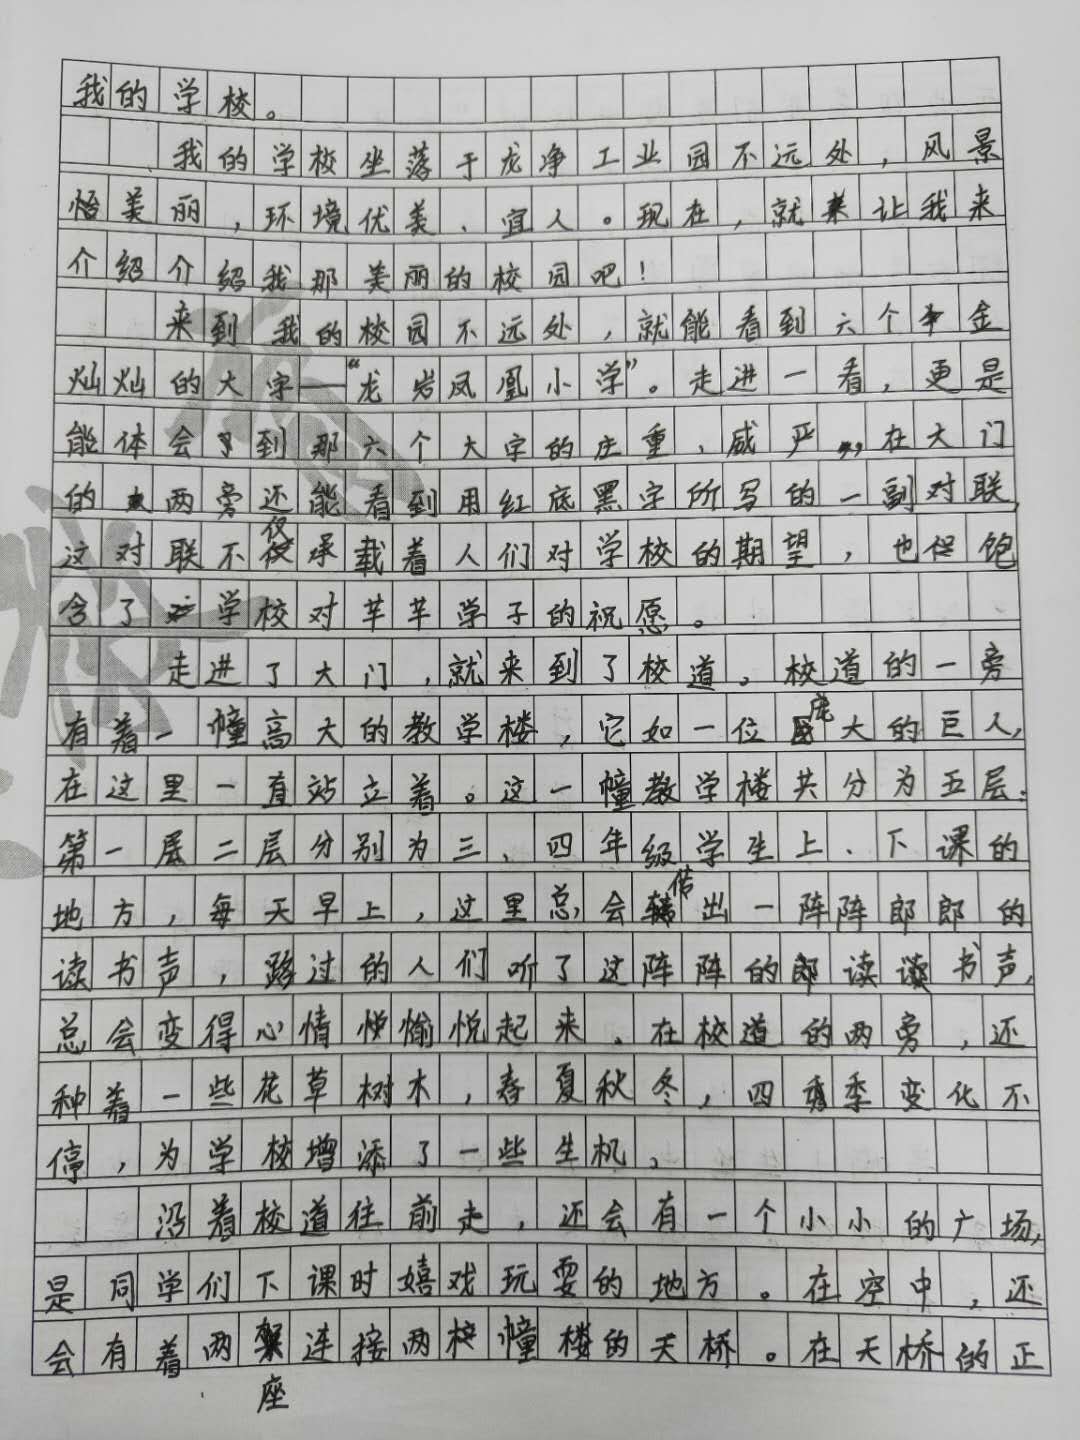 我的学校。
我的学校坐落于龙净工业园不远处，风景
怡美丽，环境优美、宜人。现在，就来让我来
介绍介绍我那美丽的校园吧！
来到我的校园不远处，就能看到六个金
灿灿的大字——“龙岩凤凰小学”。走进一看，更是
能体会到那六个大字的庄重、威严，在大门
的两旁还能看到用红底黑字所写的一副对联，
这对联不仅承载着人们对学校的期望，也饱
含了学校对芊芊学子的祝愿。
走进了大门，就来到了校道。校道的一旁
有着一幢高大的教学楼，它如一位庞大的巨人，
在这里一直站立着。这一幢教学楼共分为五层：
第一层二层分别为三、四年级学生上、下课的
地方，每天早上，这里总会传出一阵阵郎郎的
读书声，路过的人们听了这阵阵的郎读读书声，
总会变得心情愉悦起来。在校道的两旁，还
种着一些花草树木，春夏秋冬，四季变化不
停，为学校增添了一些生机。
沿着校道往前走，还会有一个小小的广场，
是同学们下课时嬉戏玩耍的地方。在空中，还
会有着两座连接两幢楼的天桥。在天桥的正